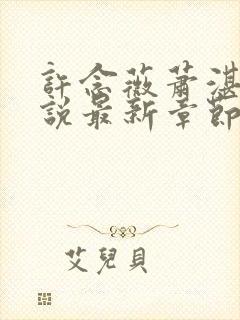 許念薇蕭湛
說最新章節
艾兒貝